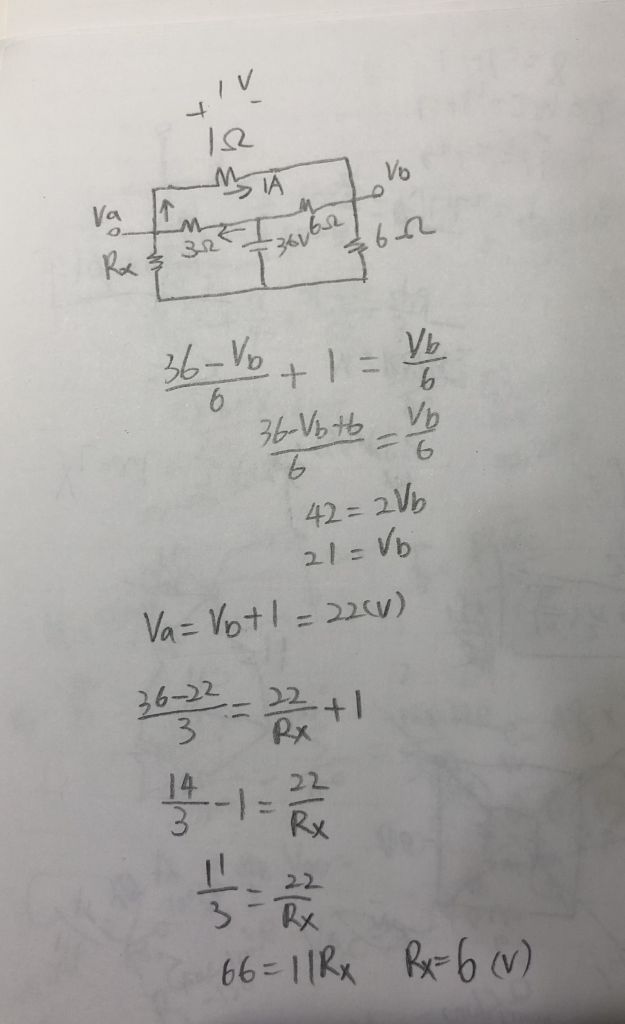 + 1V -
1Ω
1A
Va
Vb
3Ω
36V
6Ω
6Ω
Rx
36-Vb/6 + 1 = Vb/6
36-Vb+6/6 = Vb/6
42 = 2Vb
21 = Vb
Va = Vb+1 = 22(V)
36-22/3 = 22/Rx + 1
14/3 - 1 = 22/Rx
11/3 = 22/Rx
66 = 11Rx Rx=6 (V)